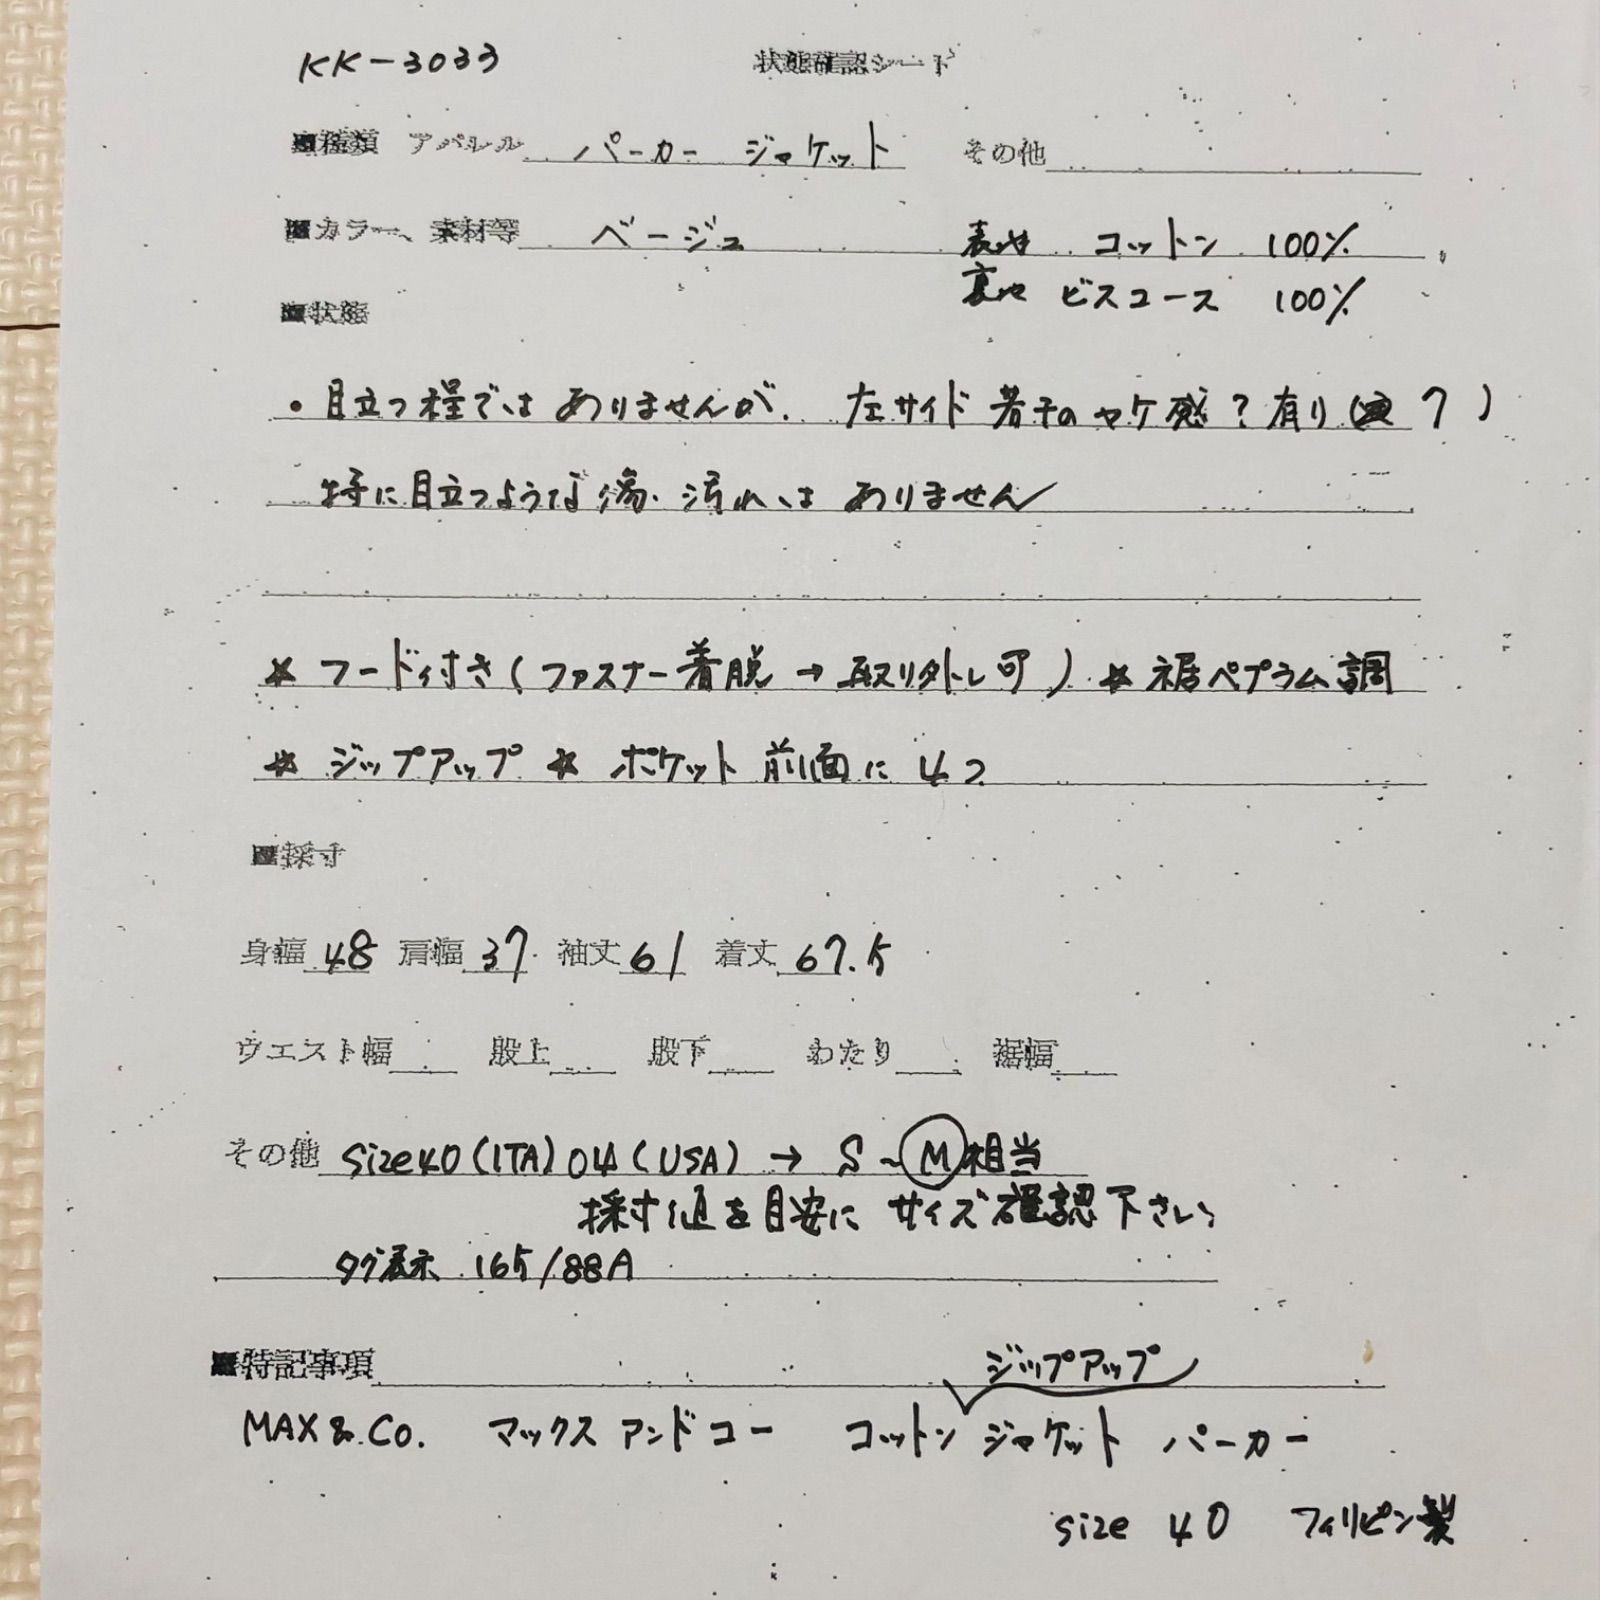 KK-3033 状態確認シート
■種類 アパレル パーカー ジャケット その他
■カラー、素材等 ベージュ 表地 コットン 100%
裏地 ビスコース 100%
■状態
・目立つ程ではありませんが、左サイド若干のヤケ感?有り(
特に目立つような傷・汚れはありません
* フード付き(ファスナー着脱→取り外し可) * 裾ペプラム調
* ジップアップ * ポケット前面に4つ
■採寸
身幅 48 肩幅 37 袖丈 61 着丈 67.5
ウエスト幅 股上 股下 わたり 裾幅
その他 size40(ITA)04(USA)→ S~M相当
採寸値を目安に サイズ確認下さい
タグ表示 165/88A
■特記事項 ジップアップ
MAX&Co. マックスアンドコー コットン ジャケット パーカー
size 40 フィリピン製